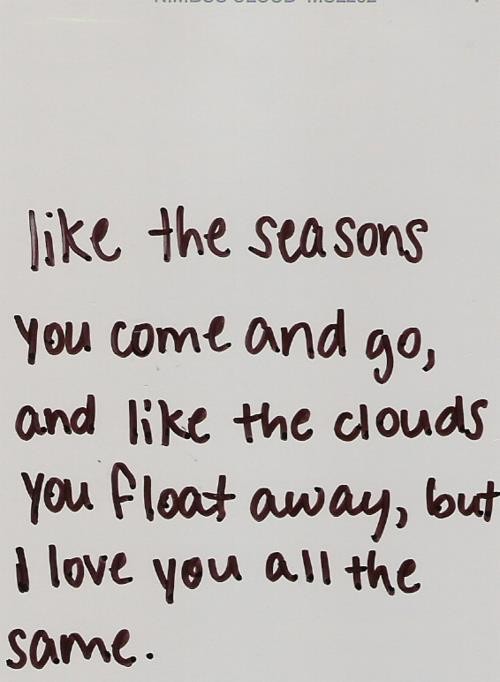 like the seasons
you come and go,
and like the clouds
you float away, but
i love you all the
same.